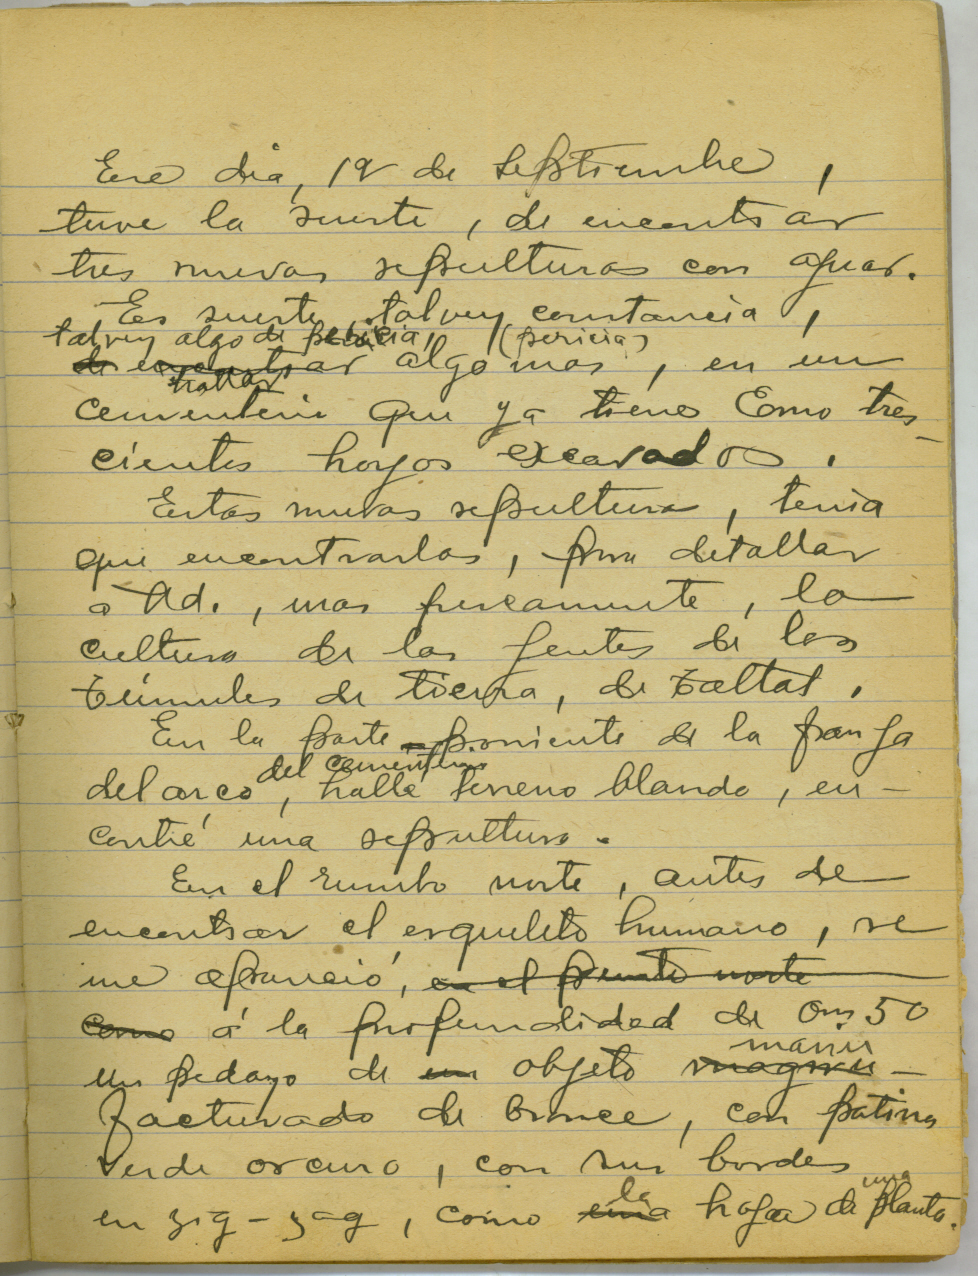 Ese dia, 19 de Septiembre,
tuve la suerte, de encontrar
tres nuevas sepulturas con ajuar.
Es suerte, talvez constancia,
talvez algo de pericia, (pericia)
de encontrar algo mas, en un
hallar
cementerio que ya tiene como tres-
cientos hoyos excavados.
Estas nuevas sepulturas, tenia
que encontrarlas, para detallar
a Ud., mas, la
cultura de las gentes de los
túmulos de tierra, de Taltal.
En la parte poniente de la franja
del cementerio
del arco, hallé terreno blando, en-
contré una sepultura.
En el rumbo norte, antes de
encontrar el esqueleto humano, se
me apareció, en el frente norte
como á la profundidad de 0m50
manu
un pedazo de un objeto magnu-
facturado de bronce, con patina
verde oscuro, con sus bordes
la una
en zig-zag, como una hoja de planta.